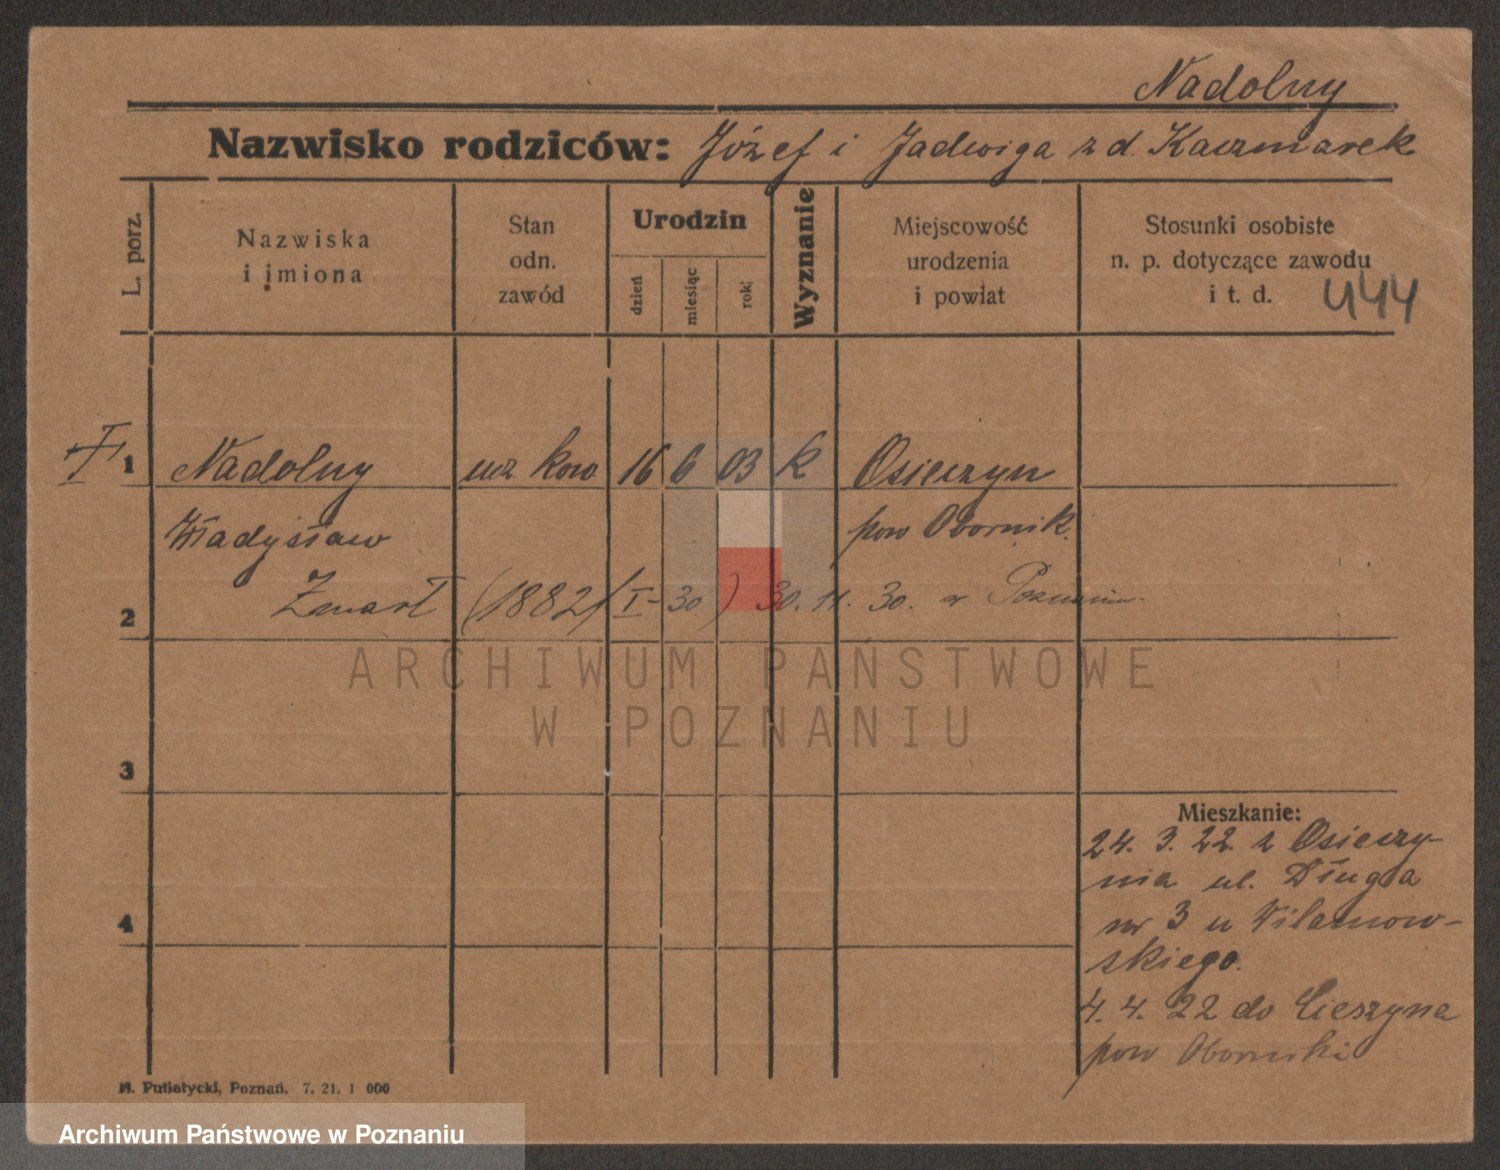 Nadolny
Nazwisko rodziców: Józef i Jadwiga z d. Kaczmarek
L. porz.
Nazwiska
i imiona
Stan
odn.
zawód
Urodzin
dzień
miesiąc
rok
Wyznanie
Miejscowość
urodzenia
i powiat
Stosunki osobiste
n. p. dotyczące zawodu
i t. d.
444
1 Nadolny ucz kow 16 6 03 k Osieczyn
Władysław pow Obornik.
2 Zmarł (1882/I-30) 30. 11. 30. w Poznaniu
ARCHIWUM PAŃSTWOWE
W POZNANIU
3
4
Mieszkanie:
24. 3. 22. z Osieczy-
nia ul. Długa
nr 3 u Wilamow-
skiego.
4. 4. 22 do Cieszyna
pow Oborniki
Poznań. 7. 21. 1 000
Archiwum Państwowe w Poznaniu